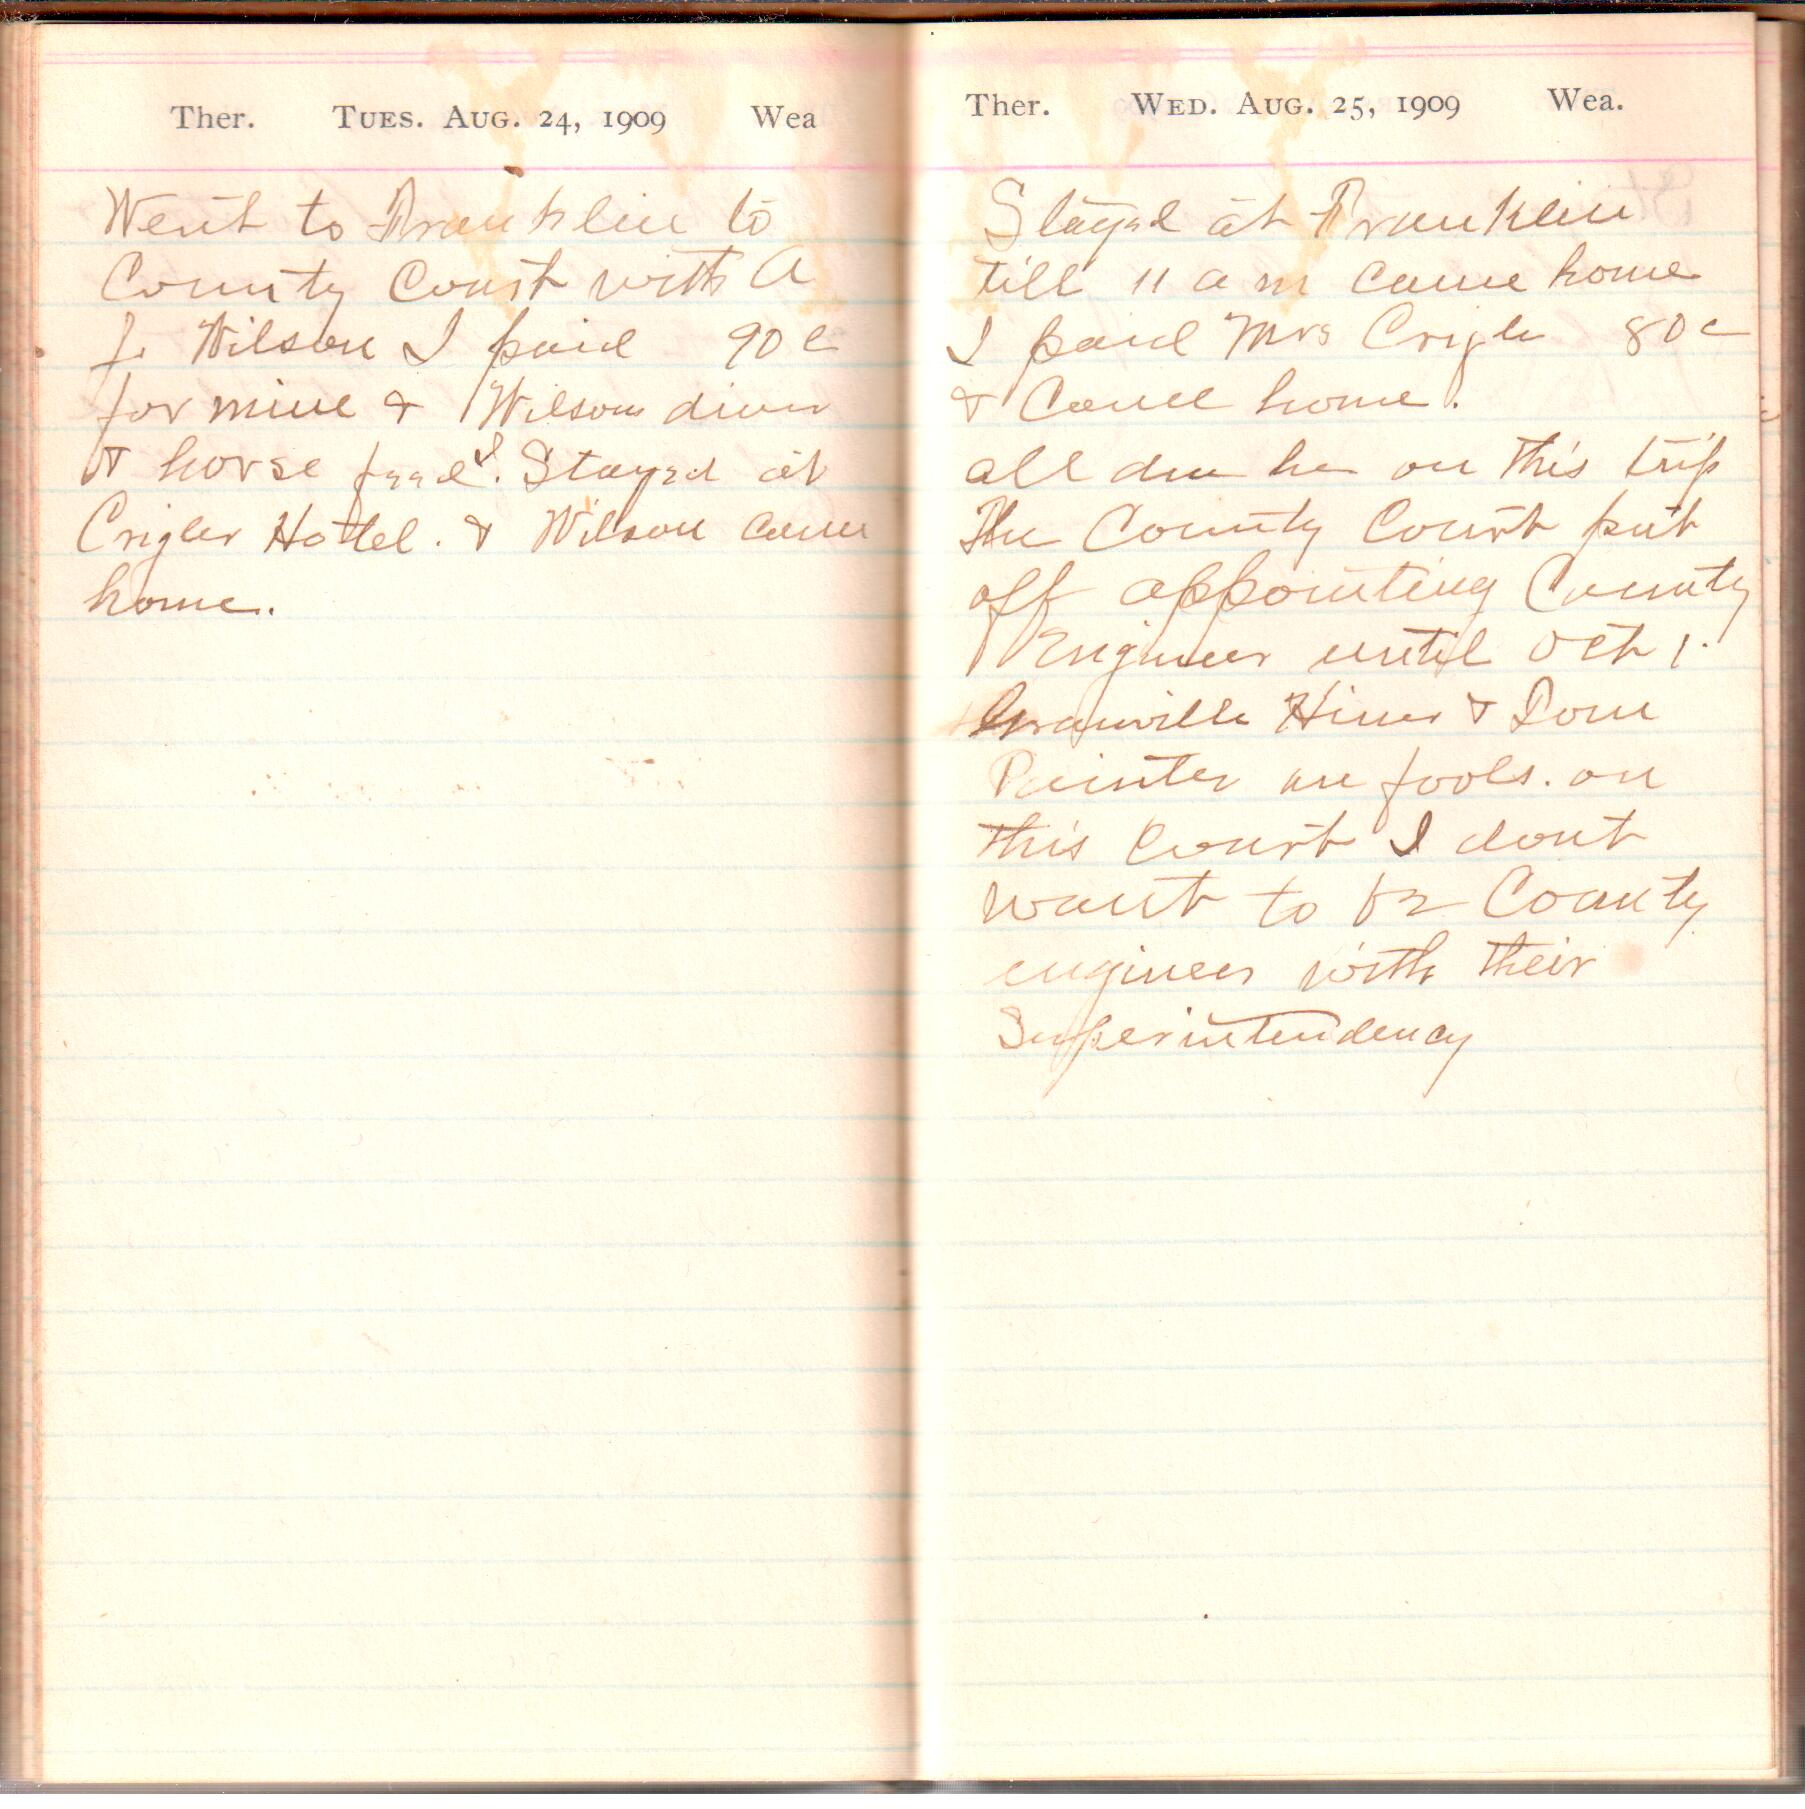 Ther. TUES. AUG. 24, 1909 Wea
Went to Franklin to
County Court with A
J. Wilson I paid 90 c
for mine & Wilson diner
& horse feed. I Stayed at
Crigler Hotel. & Wilson came
home.
Ther. WED. AUG. 25, 1909 Wea.
Stayed at Franklin
till 11 a m came home
I paid Mrs Crigle 80 c
& Came home.
all due her on this trip
The County Court put
off appointing County
Engineer until Oct 1.
Granville Hiner & Dom
Painter are fools. on
this Court I dont
want to be County
engineer with their
Superintendency